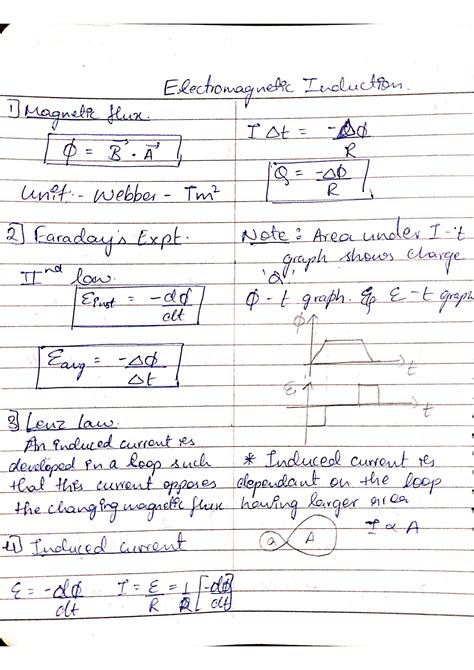 Electromagnetic Induction.
1] Magnetic flux.
ϕ = B⃗ · A⃗
Unit - Webber - Tm²
2] Faraday's Expt.
IInd law.
εinst = -dϕ
dt
εavg = -Δϕ
Δt
3] Lenz law.
An induced current is
developed in a loop such
that this current opposes
the changing magnetic flux
4] Induced current
ε = -dϕ I = ε = 1 [-dϕ]
dt R R [dt]
I Δt = -Δϕ
R
Q = -Δϕ
R
Note : Area under I-t
graph shows charge
'Q'
ϕ - t graph. ε - t graph
ϕ
t
ε
t
* Induced current is
dependant on the loop
having larger area
a A I ∝ A